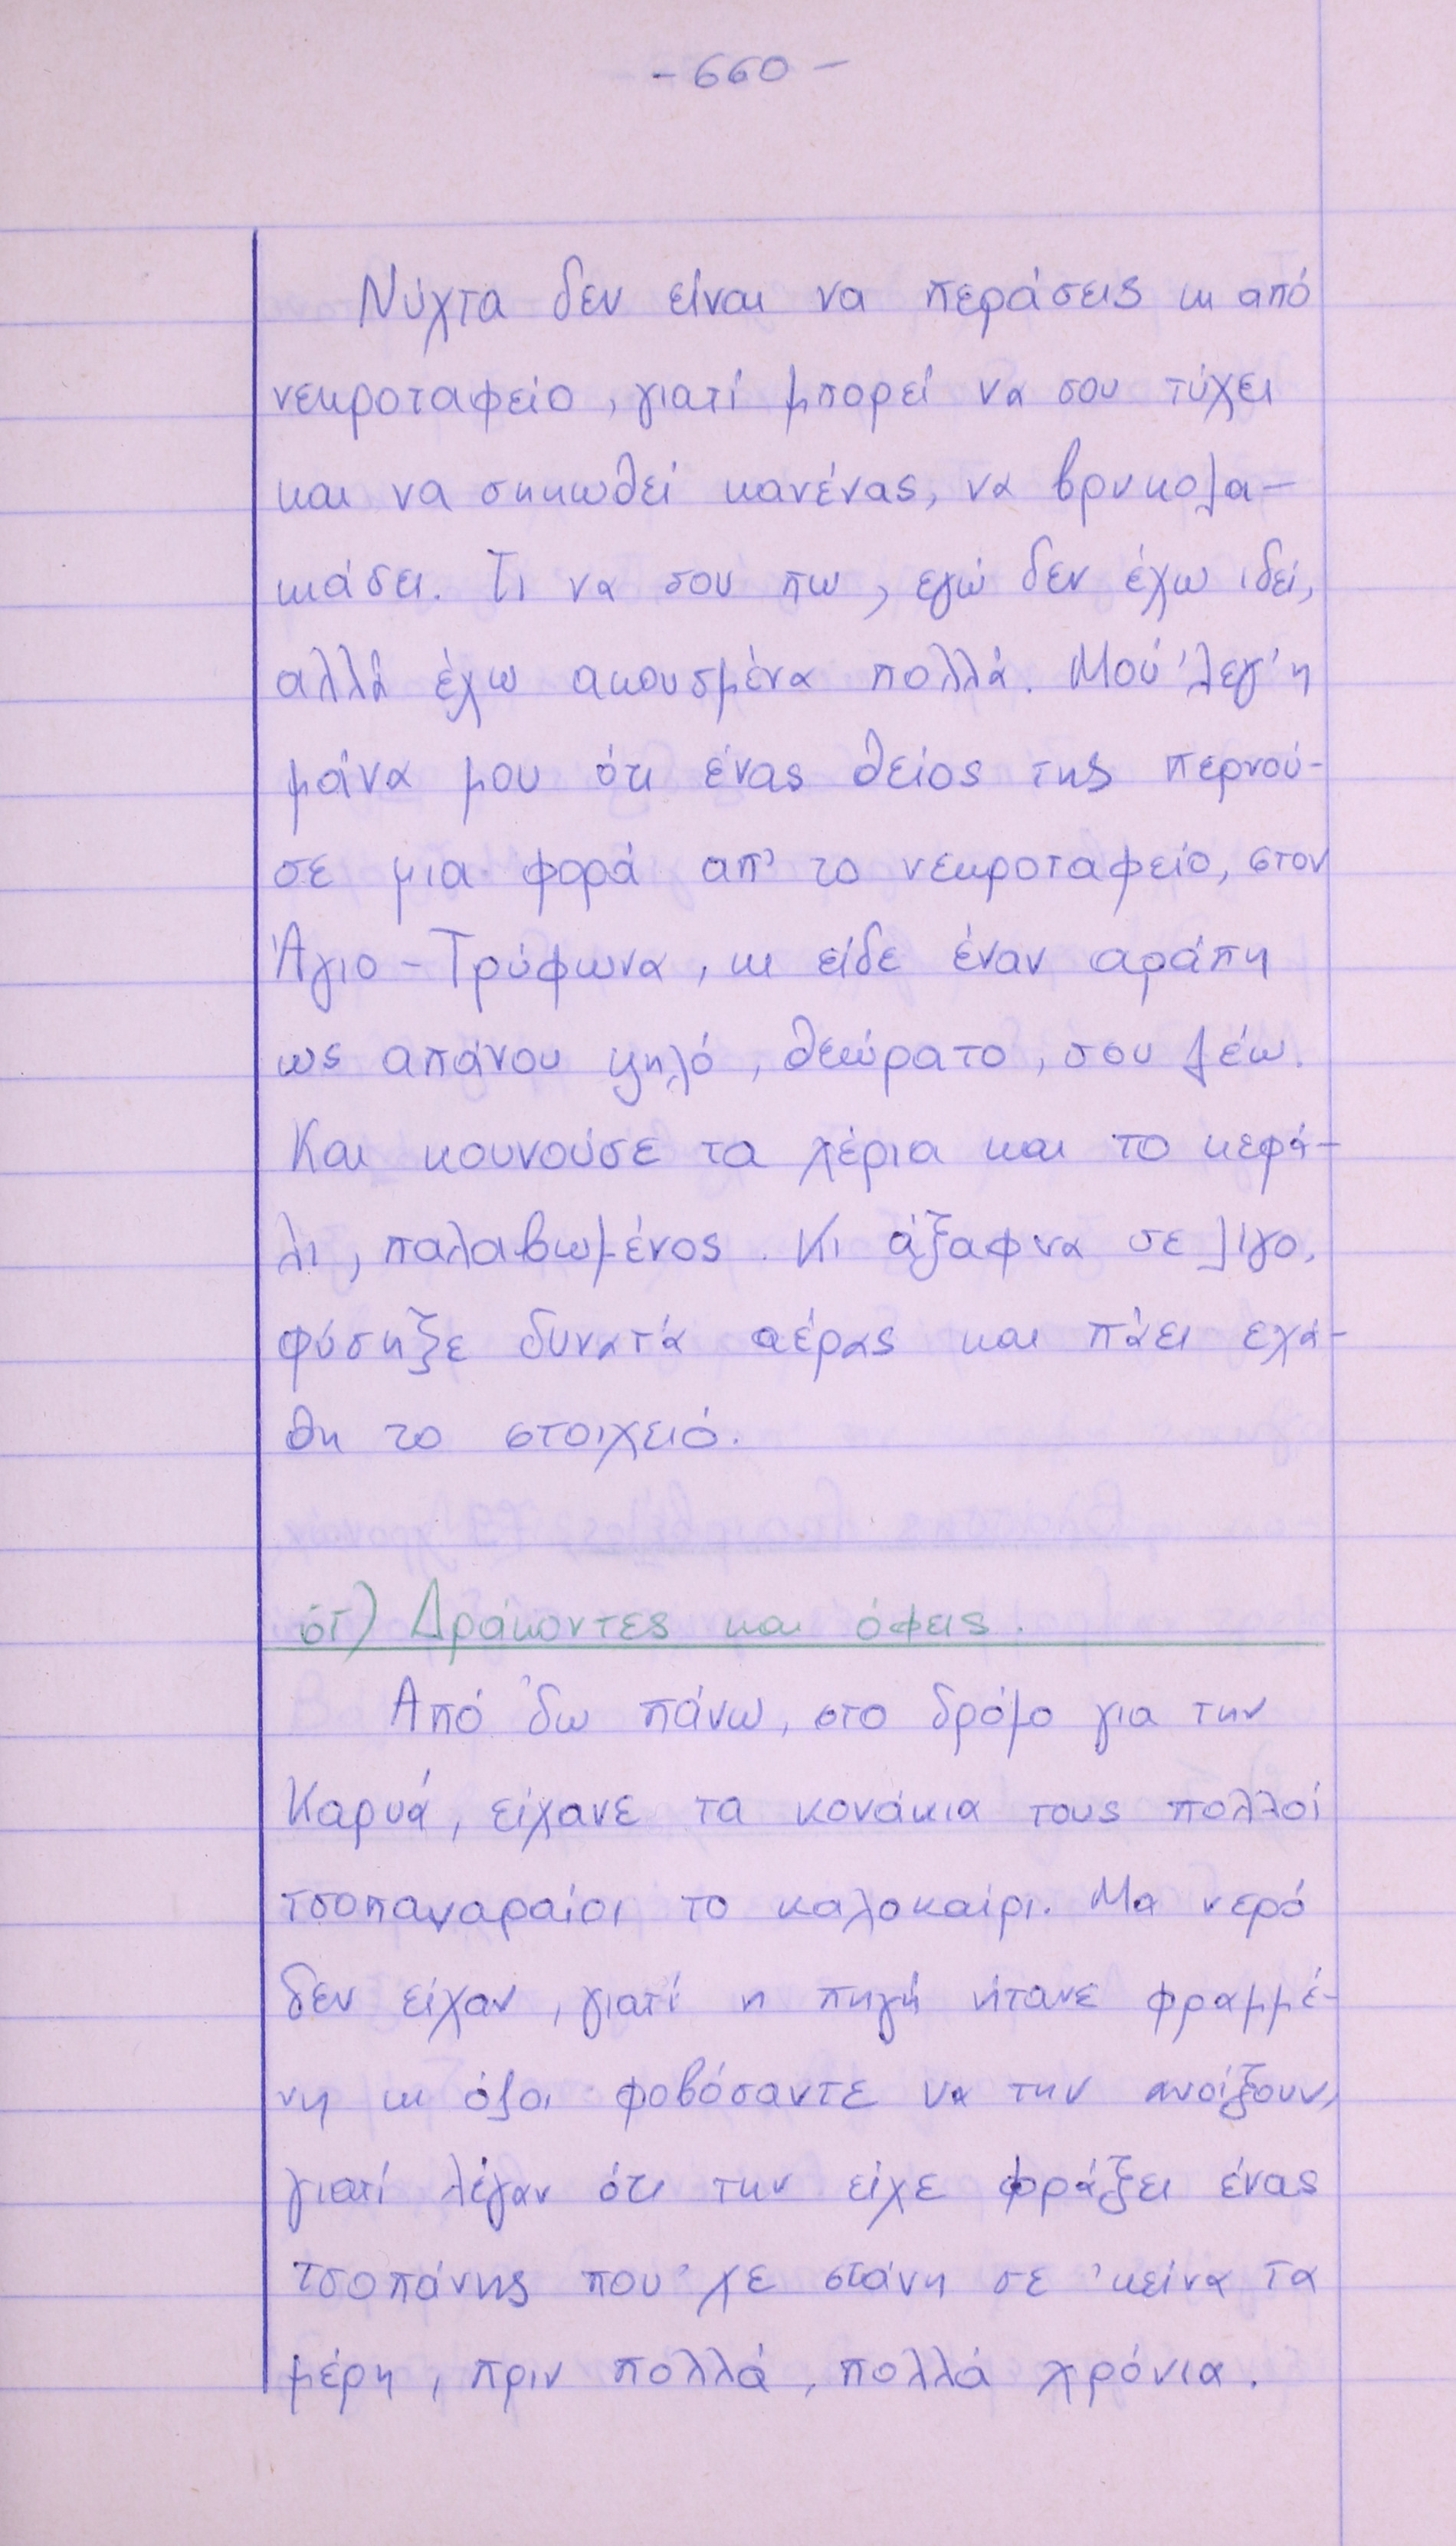 - 660 -
Νύχτα δεν είναι να περάσεις κι από
νεκροταφείο, γιατί μπορεί να σου τύχει
και να σηκωθεί κανένας, να βρυκολα-
κιάσει. Τι να σου πω, εγώ δεν έχω ιδεί,
αλλά έχω ακουσμένα πολλά. Μού 'λεγ' η
μάνα μου ότι ένας θείος της περνού-
σε μια φορά απ' το νεκροταφείο, στον
Άγιο - Τρύφωνα, κι είδε έναν αράπη
ως απάνου ψηλό, θεώρατο, σου λέω.
Και κουνούσε τα χέρια και το κεφά-
λι, παλαβωμένος. Κι άξαφνα σε λίγο,
φύσηξε δυνατά αέρας και πάει εχά-
θη το στοιχειό.
στ) Δράκοντες και όφεις.
Από 'δω πάνω, στο δρόμο για την
Καρυά, είχανε τα κονάκια τους πολλοί
τσοπαναραίοι το καλοκαίρι. Μα νερό
δεν είχαν, γιατί η πηγή ήτανε φραμμέ-
νη κι όλοι φοβόσαντε να την ανοίξουν,
γιατί λέγαν ότι την είχε φράξει ένας
τσοπάνης που 'χε στάνη σε 'κείνα τα
μέρη, πριν πολλά, πολλά χρόνια.